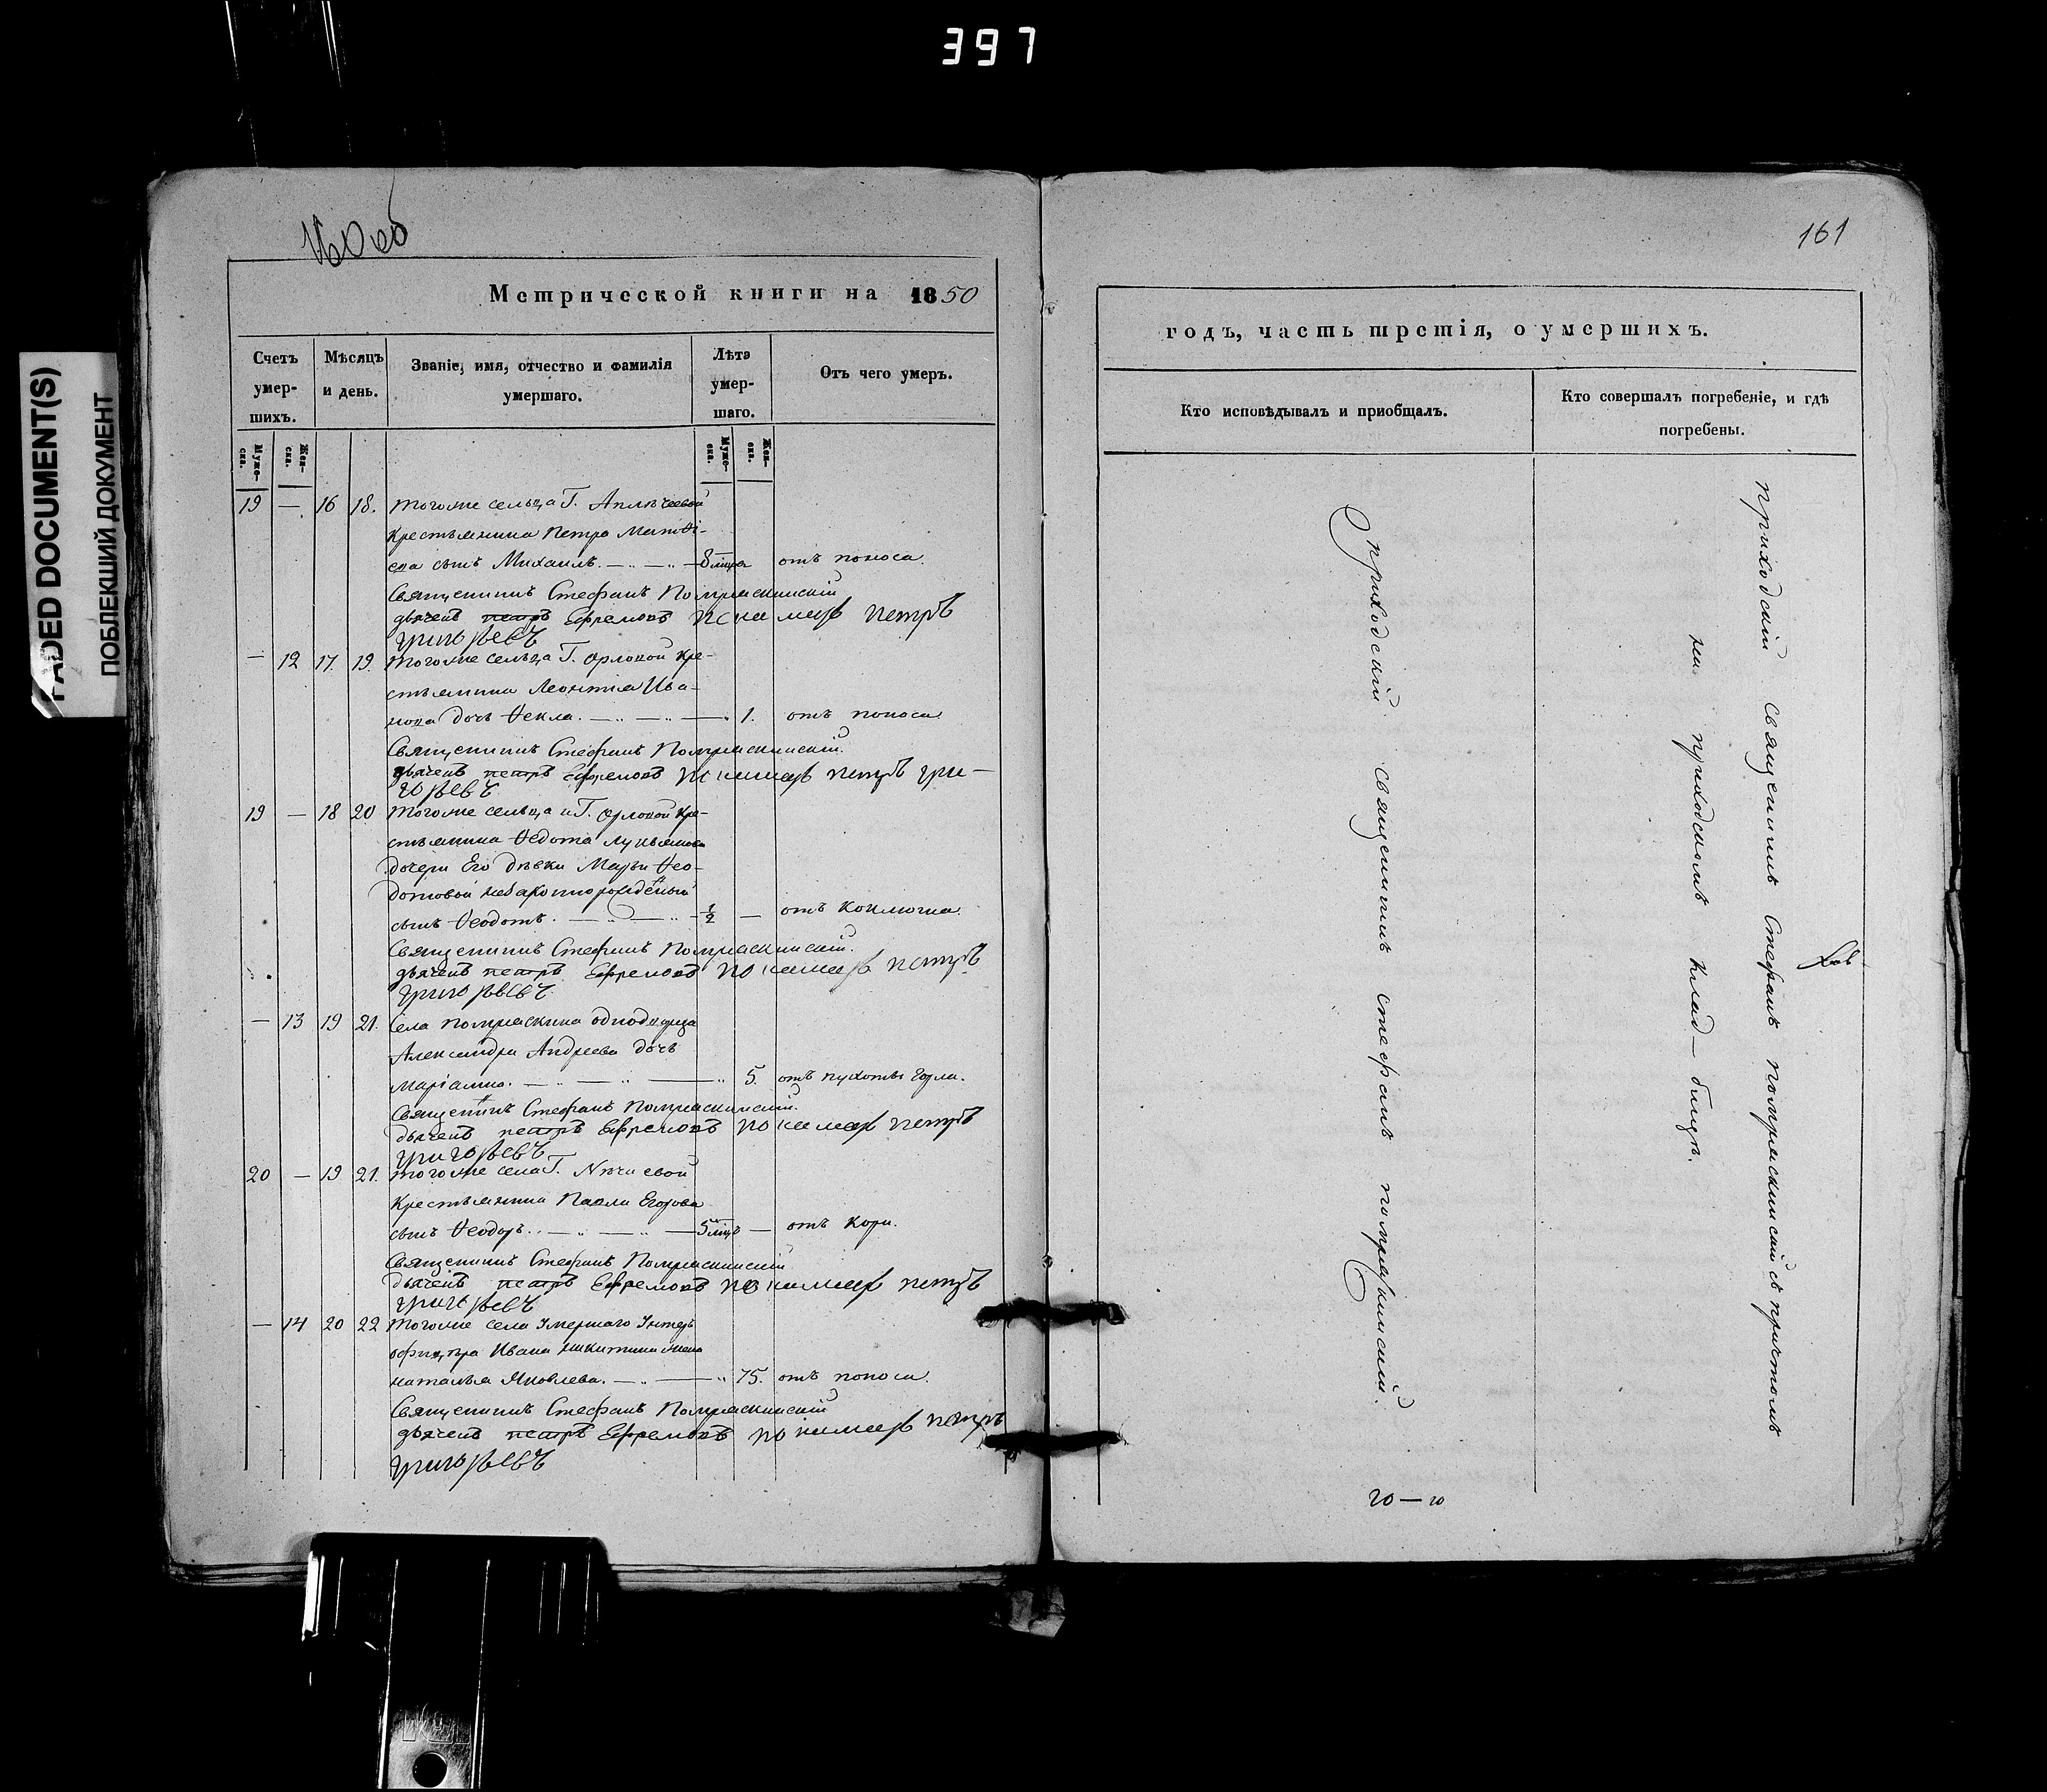 397
FADED DOCUMENT(S)
ПОБЛЕКШИЙ ДОКУМЕНТ
160 об
Метрической книги на 1850
Счетъ умер-шихъ.
Мѣсяцъ и день.
Званіе, имя, отчество и фамилія умершаго.
Лѣта умер-шаго.
Отъ чего умеръ.
Муже-ска. Жен-ска. Муже-ска. Жен-ска.
19 — 16 18. тогоже сельца Г.
Крестьянина Петра Матѳі-
ева сынъ Михаилъ. — 8 отъ поноса.
Священникъ Стефанъ Помряскинскій
дьячекъ петръ Ефремовъ пономарь петръ
григорьевъ
— 12 17. 19. тогоже сельца Г. Орловой кре-
стьянина Леонтія Ива-
нова дочь Ѳекла. — 1. отъ поноса
Священникъ Стефанъ Помряскинскій.
дьячекъ петръ Ефремовъ пономарь петръ гри-
горьевъ
19 — 18 20 тогоже сельца Г. Орловой кре-
стьянина Ѳедота Лукьянова
дочери Его дѣвки Марьи Ѳео-
дотовой незаконнорожденый
сынъ Ѳеодотъ. — 1/2 — отъ коклюша.
Священникъ Стефанъ Помряскинскій.
дьячекъ петръ Ефремовъ пономарь петръ
григорьевъ
— 13 19 21. Села помряскина однодворца
Александра Андреева дочь
Маріамна. — 5. отъ пухоты горла.
Священникъ Стефанъ Помряскинскій.
дьячекъ петръ Ефремовъ пономарь петръ
григорьевъ
20 — 19 21. тогоже села Г.
Крестьянина Павла Егорова
сынъ Ѳеодоръ. — 5 — отъ кори.
Священникъ Стефанъ Помряскинскій
дьячекъ петръ Ефремовъ пономарь петръ
григорьевъ
— 14 20 22 тогоже села Умершаго Унтеръ
офицера Ивана Никитина жена
наталья Яковлева. — 75. отъ поноса.
Священникъ Стефанъ Помряскинскій
дьячекъ петръ Ефремовъ пономарь петръ
григорьевъ
161
годъ, часть третія, о умершихъ.
Кто исповѣдывалъ и пріобщалъ.
Кто совершалъ погребеніе, и гдѣ погребены.
приходскій священникъ стефанъ помряскинскій.
приходскій священникъ Стефанъ помряскинскій съ причтомъ
на приходскомъ клад-бищѣ.